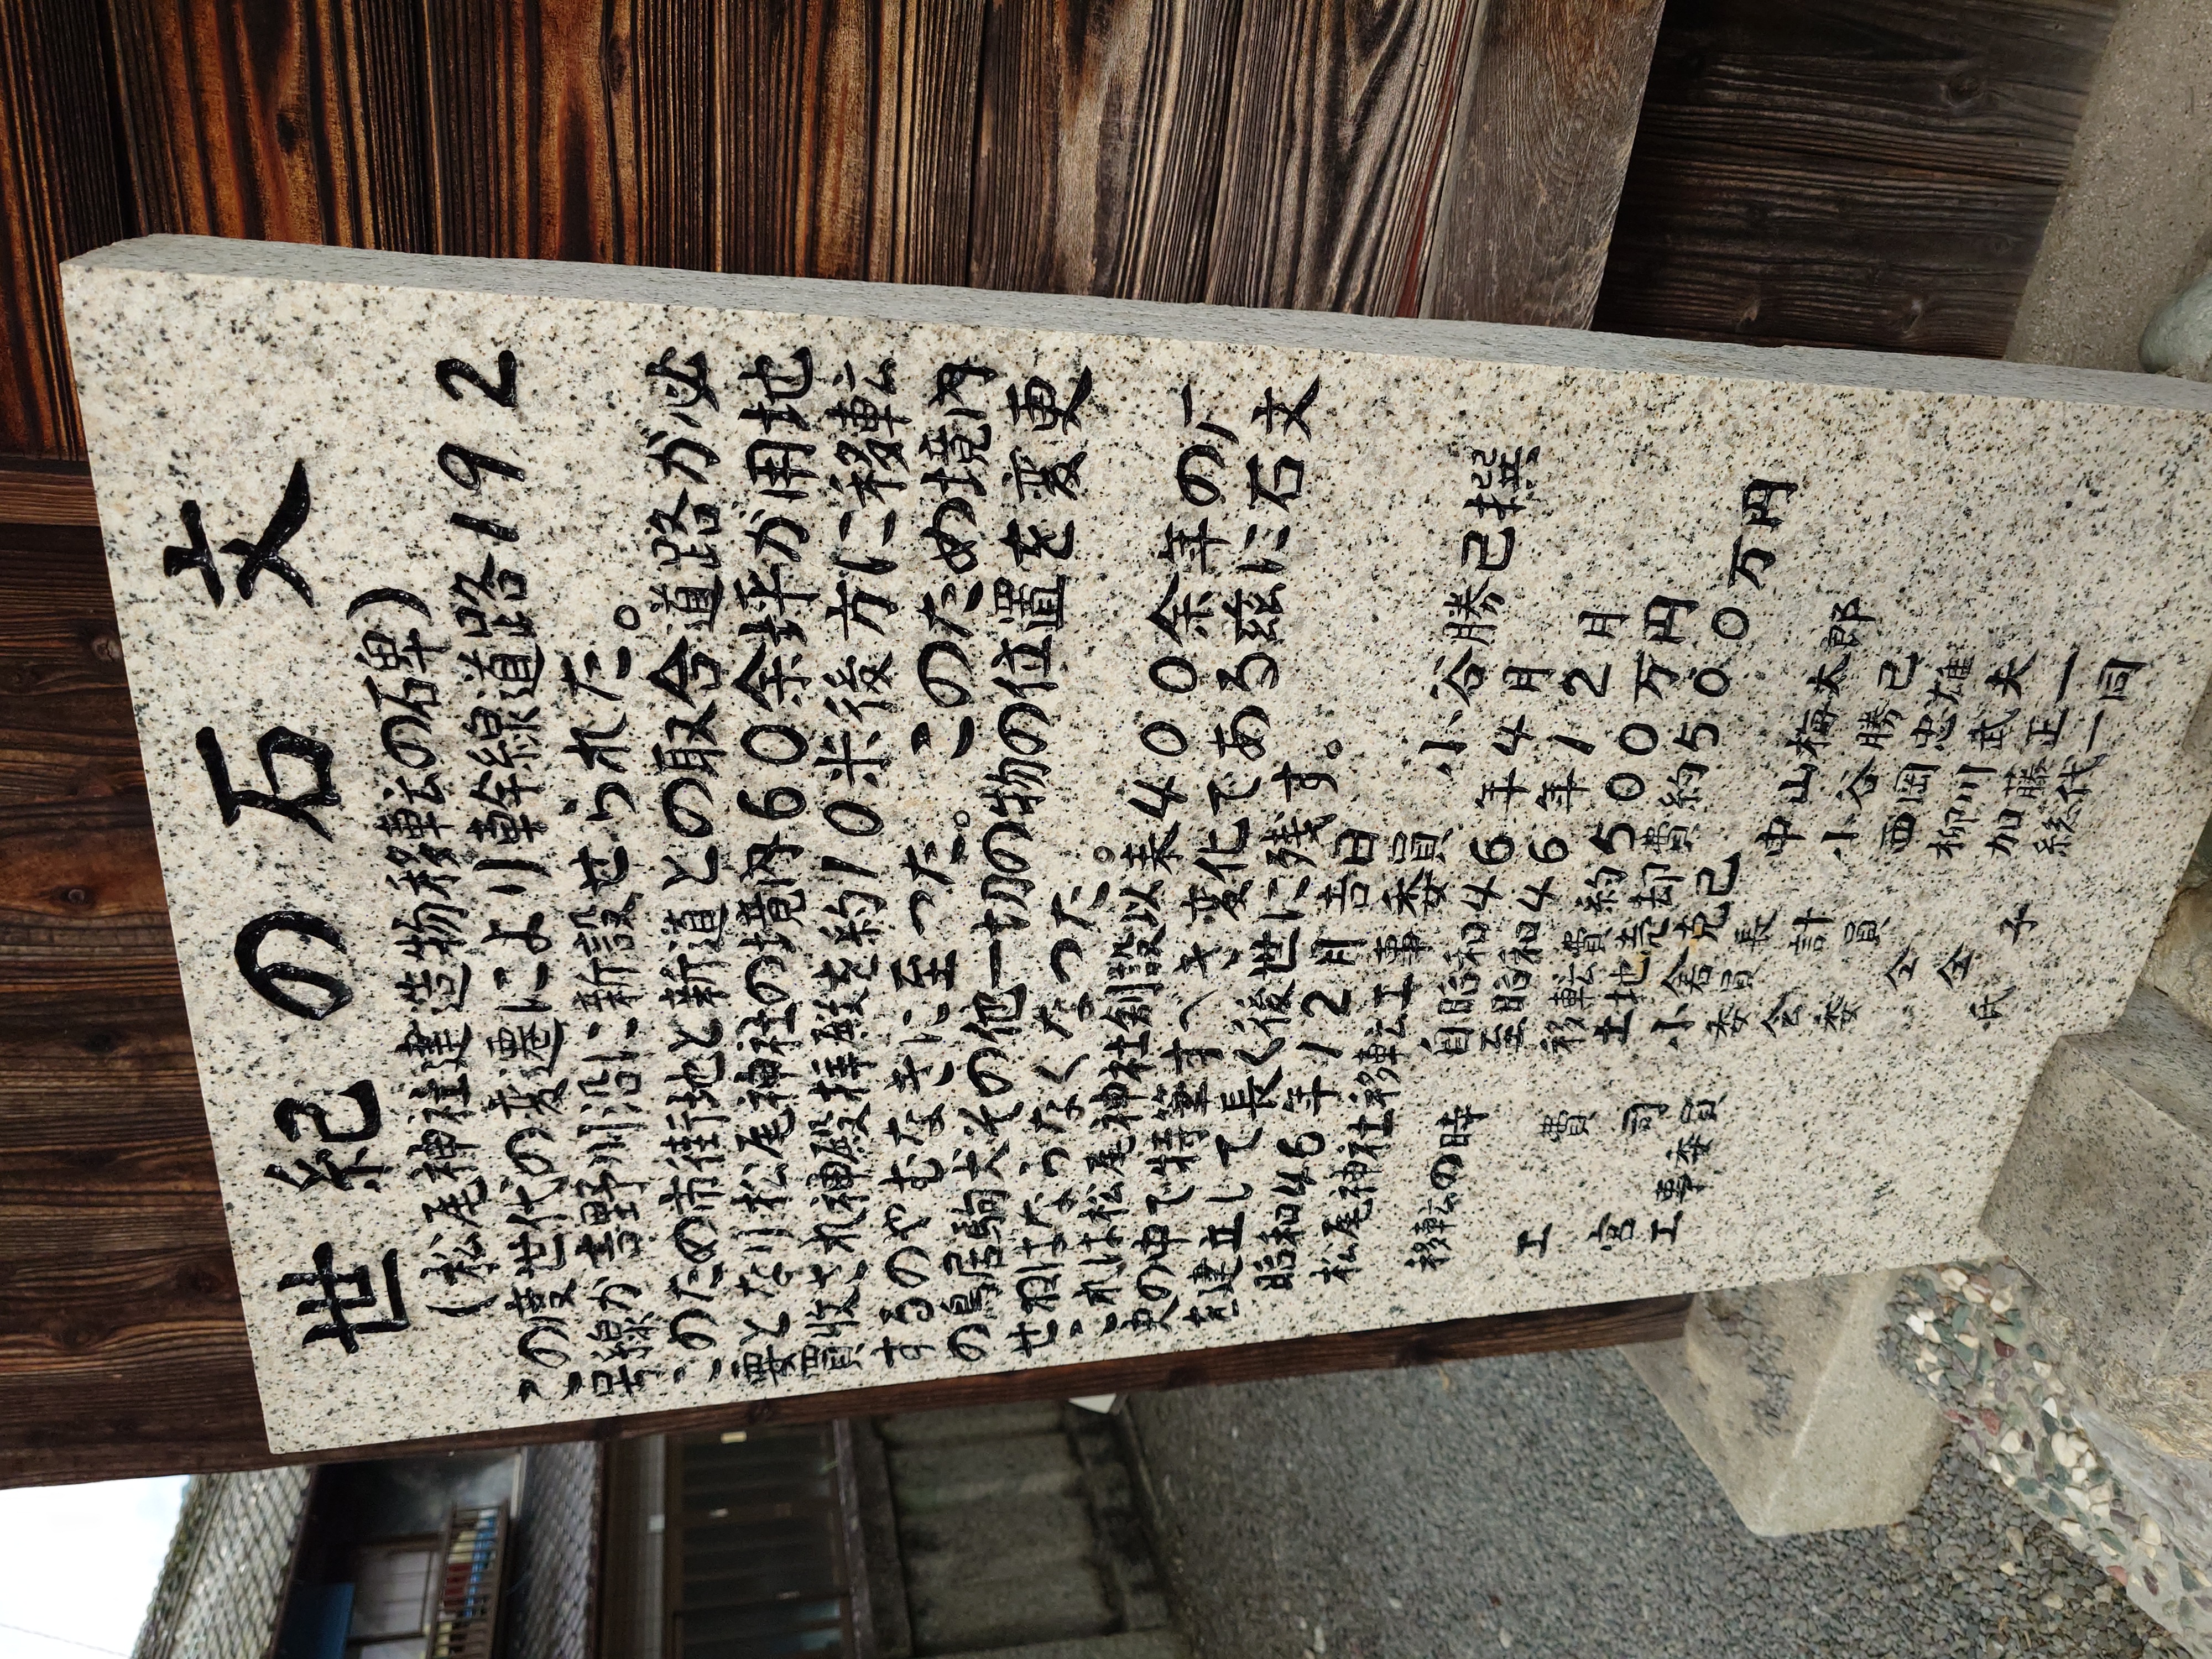 世紀の石文
(松尾神社建造物移転の石碑)
この度世代の変遷により幹線道路192
号線が吉野川沿に新設せられた。
このための市街地と新道との取合道路が必
要となり松尾神社の境内60余坪が用地
買収され神殿拝殿を約10米後方に移転
するのやむなきに至った。このため境内
の鳥居駒犬その他一切の物の位置を変更
せねばならなくなった。
これは松尾神社創設以来400余年の歴
史の中で特筆すべき変化である茲に石文
を建立して長く後世に残す。
昭和46年12月吉日
松尾神社移転工事委員 小谷勝己撰
移転の時 自昭和46年4月
至昭和46年12月
工費 移転費約500万円
土地売却費約500万円
宮司 小倉克己
工事委員 委員長 中山梅太郎
会計 小谷勝己
委員 西岡忠雄
仝 柳川武夫
仝 加藤正一
氏子総代一同